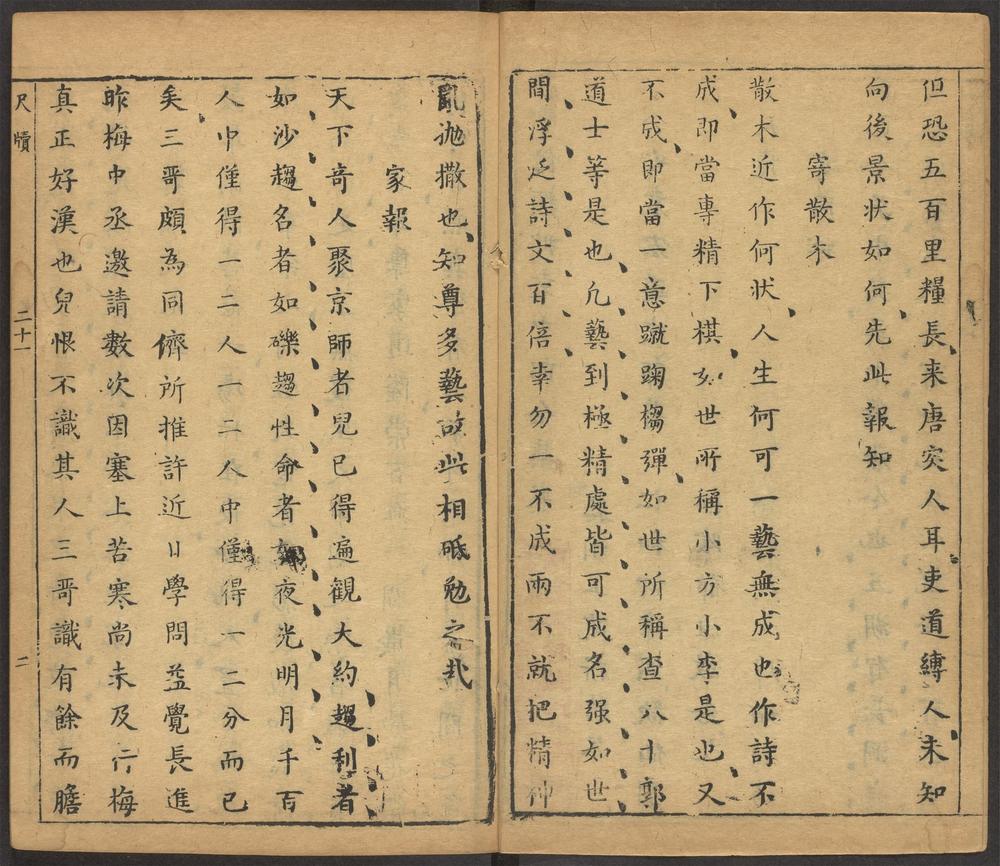 但恐五百里糧長来唐突人耳吏道縛人未知
向後景状如何先此報知
寄散木
散木近作何状人生何可一藝無成也作詩不
成即當專精下棋如世所稱小方小李是也又
不成即當一意蹴踘搊彈如世所稱查八十郭
道士等是也凡藝到極精處皆可成名强如世
間浮泛詩文百倍幸勿一不成兩不就把精神
亂抛撒也知尊多藝故此相砥勉之哉
家報
天下奇人聚京師者兒已得遍觀大約趨利者
如沙趨名者如礫趨性命者如夜光明月千百
人中僅得一二人一二人中僅得一二分而已
矣三哥頗為同儕所推許近日學問益覺長進
昨梅中丞邀請數次因塞上苦寒尚未及行梅
真正好漢也兒恨不識其人三哥識有餘而膽
尺牘
二十一
二